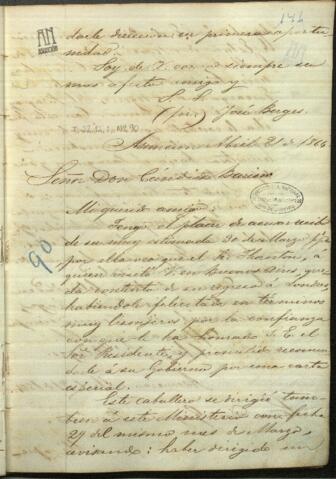 146
AN
ASUNCIÓN
darle direccion en primera oportu
nidad.
Soy de V. como siempre su
mas afecto amigo y
S. S.
(fir.) José Berges.
I-22,12,1, Nº 90
Asuncion Abril 21 de 1866
Señor Don Cándido Bareiro
90
Mi querido amigo:
Tengo el placer de acusar recibo
de su muy estimada 30 de Marzo ppdo
por ella veo que el Sr
quien visitó V. en Buenos Aires, que
da contento de su regreso á Londres,
habiéndole felicitado en terminos
muy lisonjeros por la confianza
con que le ha honrado S. E. el
Sor Presidente, y prometido recomen
darle á su Gobierno por una carta
especial.
Este caballero se dirigió tam
bien á este Ministerio con fecha
29 del mismo mes de Marzo,
avisando: haber dirigido un